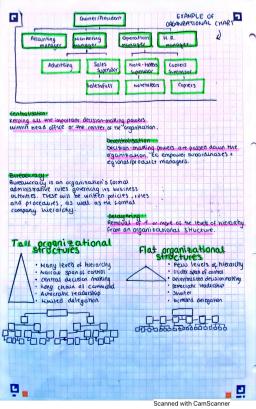 EXAMPLE OF
ORGANIZATIONAL CHART
Owner/President
Accounting manager
Marketing manager
Operations manager
H.R. manager
Advertising
Sales
Supervisor
Supervisor
Centralisation
Keeping all the important decision-making powers
within head office or the center of the organisation.
Decentralisation
Decision-making powers are passed down the
organisation, to empower subordinates +
regional/product managers.
Bureaucracy
Bureaucracy is an organisation's formal
administrative rules governing its business
activities. These will be written policies, rules
and procedures, as well as the formal
company hierarchy.
Delayering
Removal of 1 or more of the levels of hierarchy
from an organisational structure.
Tall organizational
structures
• Many levels of hierarchy
• Narrow span of control
• Central decision making
• Long chain of command
• Autocratic leadership
• Limited delegation
Flat organizational
structures
• Few levels of hierarchy
• Wider span of control
• Decentralised decision making
• Democratic leadership
• Shorter
• Increased delegation
Scanned with CamScanner